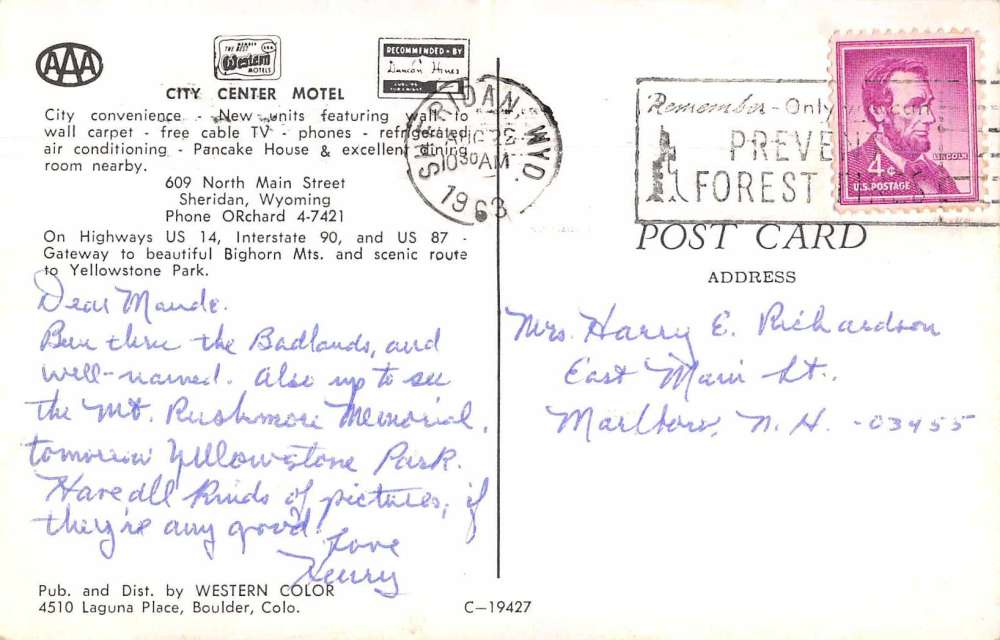 AAA
MEMBER
THE BEST
Western
MOTELS
RECOMMENDED · BY
Duncan Hines
CITY CENTER MOTEL
City convenience - New units featuring wall to
wall carpet - free cable TV - phones - refrigerated
air conditioning - Pancake House & excellent dining
room nearby.
609 North Main Street
Sheridan, Wyoming
Phone ORchard 4-7421
On Highways US 14, Interstate 90, and US 87 -
Gateway to beautiful Bighorn Mts. and scenic route
to Yellowstone Park.
SHERIDAN, WYO.
10 30 AM
1963
Remember - Only you can
PREVENT
FOREST FIRES
LINCOLN
4¢
U.S. POSTAGE
POST CARD
ADDRESS
Dear Maude.
Been thru the Badlands, and
well-named. Also up to see
the Mt. Rushmore Memorial,
tomorrow Yellowstone Park.
Have all kinds of pictures, if
they're any good.
Love
Henry
Mrs. Harry E. Richardson
East Main St.
Marlboro, N. H. - 03455
Pub. and Dist. by WESTERN COLOR
4510 Laguna Place, Boulder, Colo.
C-19427